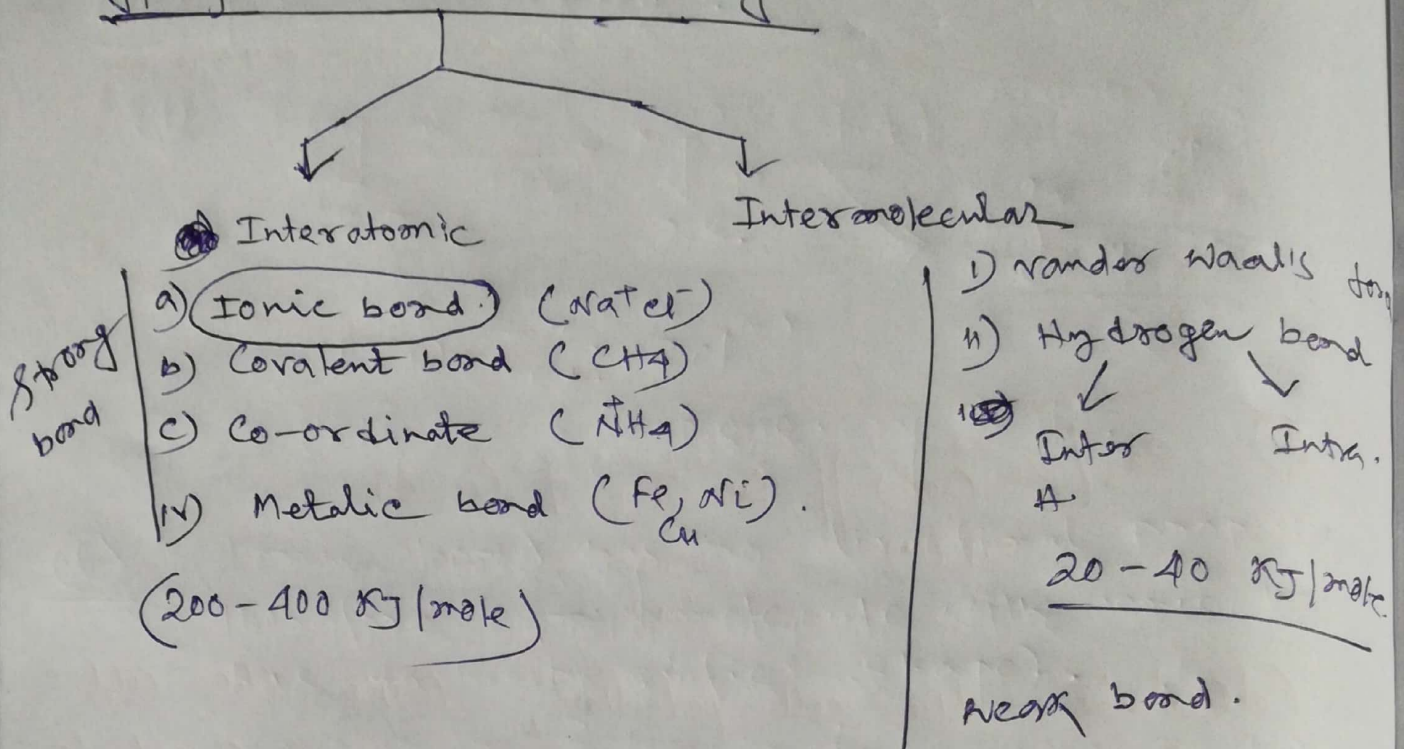 Interatomic
Intermolecular
Strong bond
a) Ionic bond. (Na+ Cl-)
b) Covalent bond (CH4)
c) Co-ordinate (N+H4)
IV) Metalic bond (Fe, Ni).
Cu
(200-400 KJ/mole)
I) Vander Waal's
II) Hydrogen bond
Inter Intra.
20-40 KJ/mole
Weak bond.